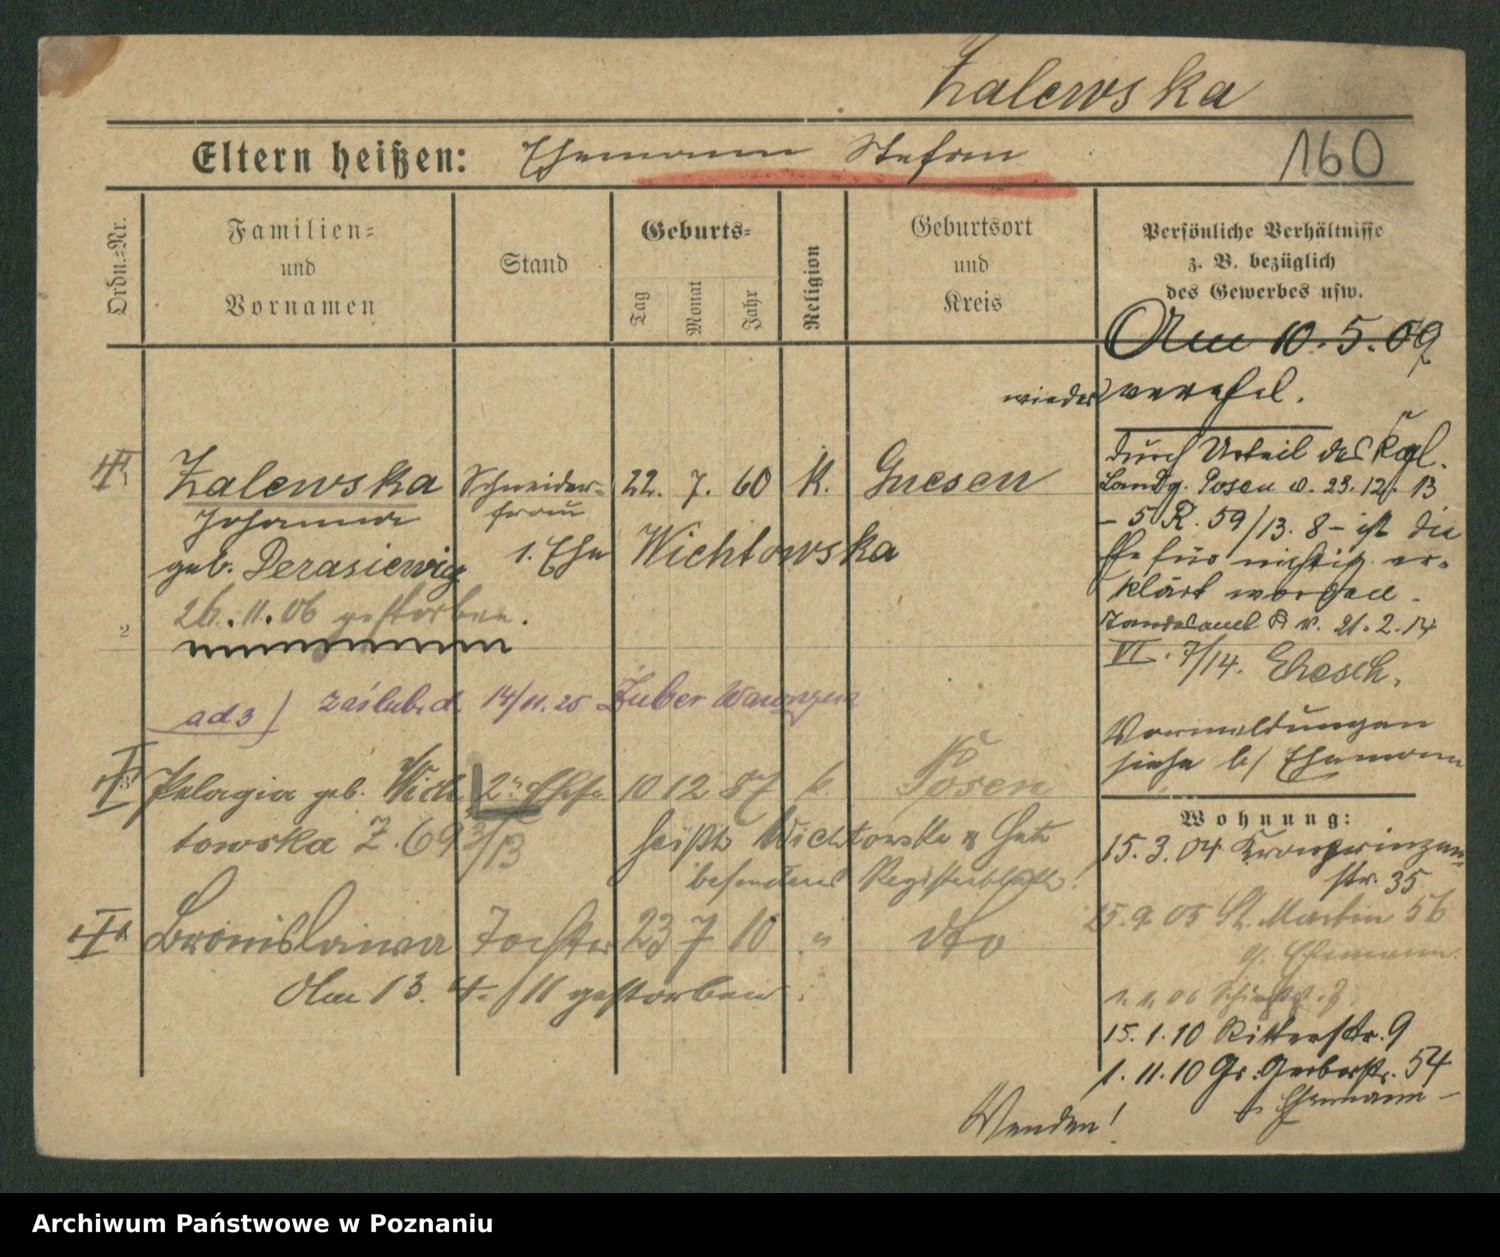 Zalewska
160
Eltern heißen: Ehemann Stefan
Ordn.-Nr.
Familien-
und
Vornamen
Stand
Geburts-
Tag
Monat
Jahr
Religion
Geburtsort
und
Kreis
Persönliche Verhältnisse
z. B. bezüglich
des Gewerbes usw.
Am 10.5.09
wieder verehel.
durch Urteil des Kgl.
Landg. Posen v. 23.12. 13
- 5 R. 59/13. 8 - ist die
Ehe für nichtig er-
klärt worden.
Standesamt v. 21.2.14
VI. 7/14. Ehesch.
Vormeldungen
siehe b/ Ehemann
1
Zalewska Schneider- 22. 7. 60 K. Gnesen
Johanna frau
geb. Derasiewig 1. Ehe Wichtowska
26.11.06 gestorben.
2
ad 3) zaślub. d. 14/11.25 Zuber Wawrzyn
3 Pelagia geb. Wich 2te Ehefr. 10 12 87 k. Posen
towska Z. 69 3/13 heißt Wichtowska u hat
besonderes Registerblatt!
4 Bronislawa Tochter 23 7 10 " dto
Am 13. 4. 11 gestorben.
Wohnung:
15.3.04 Kronprinzen-
str. 35
15.9.05 St. Martin 56
b. Ehemann
1.11.06
15.1.10 Ritterstr. 9
1.11.10 Gr. Gerberstr. 54
b. Ehemann -
Wenden!
Archiwum Państwowe w Poznaniu